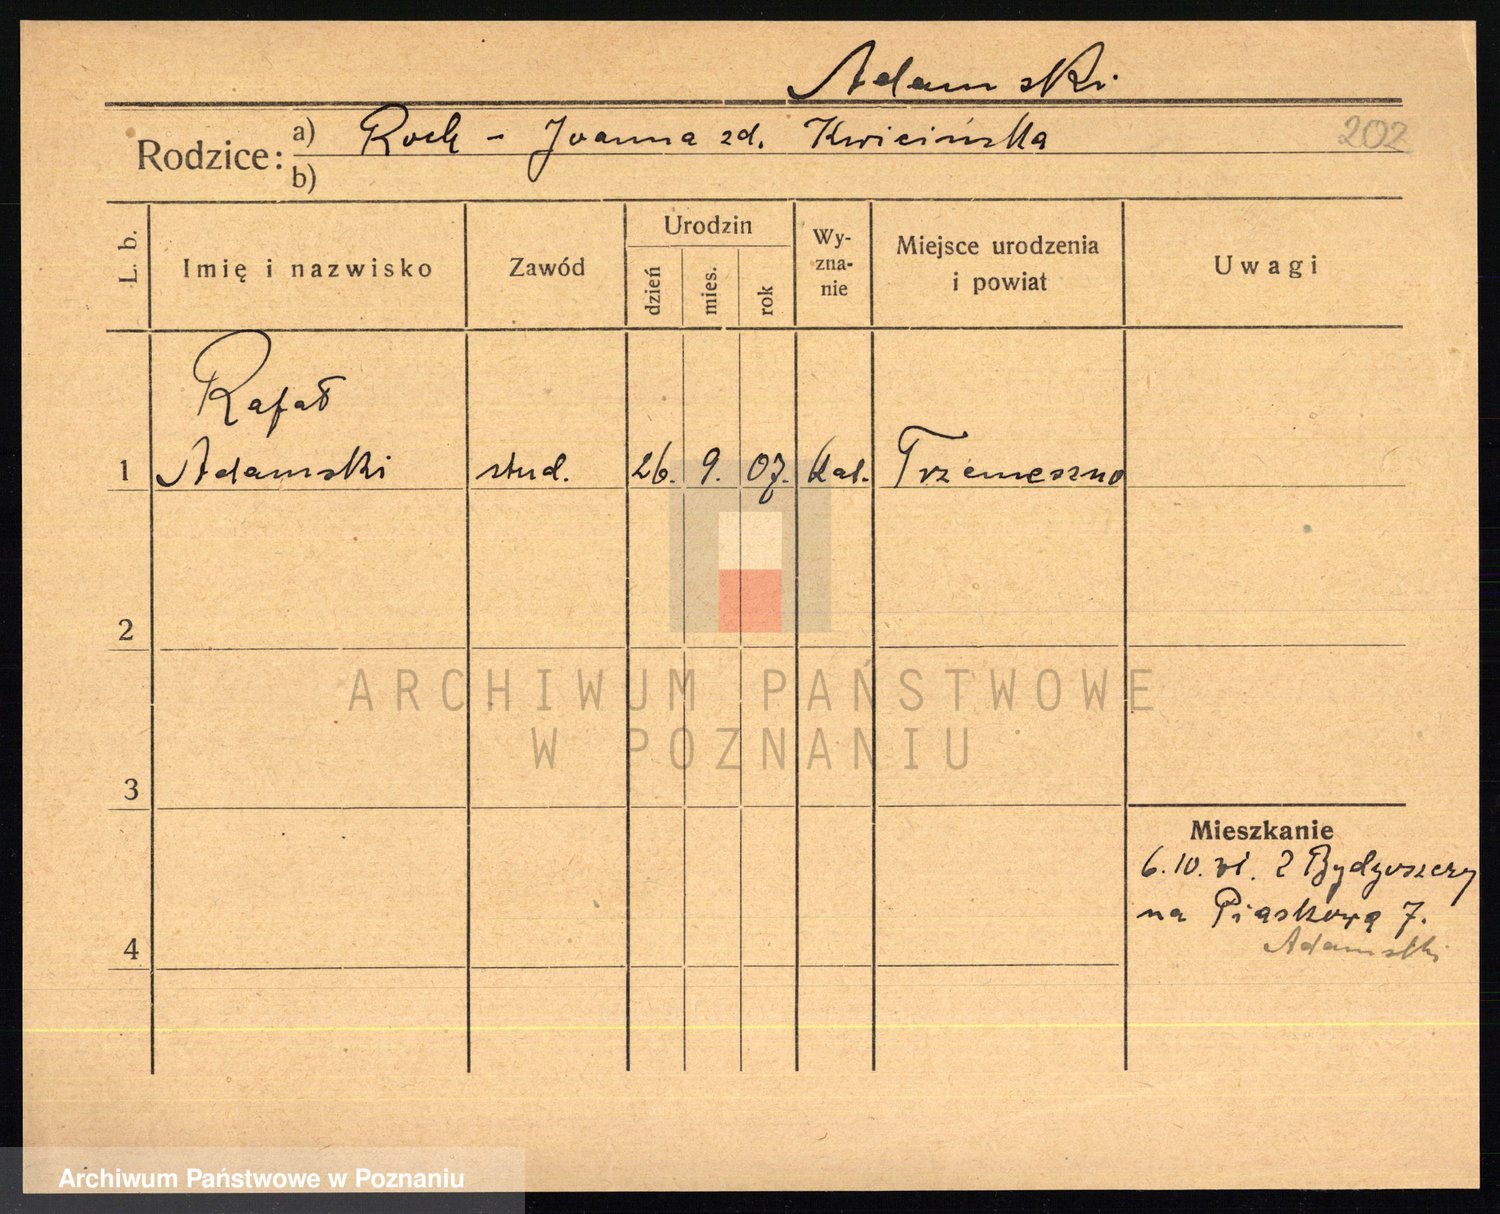 Adamski
Rodzice: a) Roch - Joanna zd. Kwicińska
202
b)
L. b.
Imię i nazwisko
Zawód
Urodzin
dzień
mies.
rok
Wy-
zna-
nie
Miejsce urodzenia
i powiat
Uwagi
Rafał
1 Adamski stud. 26. 9. 07. kat. Trzemeszno
2
ARCHIWUM PAŃSTWOWE
W POZNANIU
3
Mieszkanie
6. 10. 31. z Bydgoszczy
na Piaskową 7.
Adamski
4
Archiwum Państwowe w Poznaniu